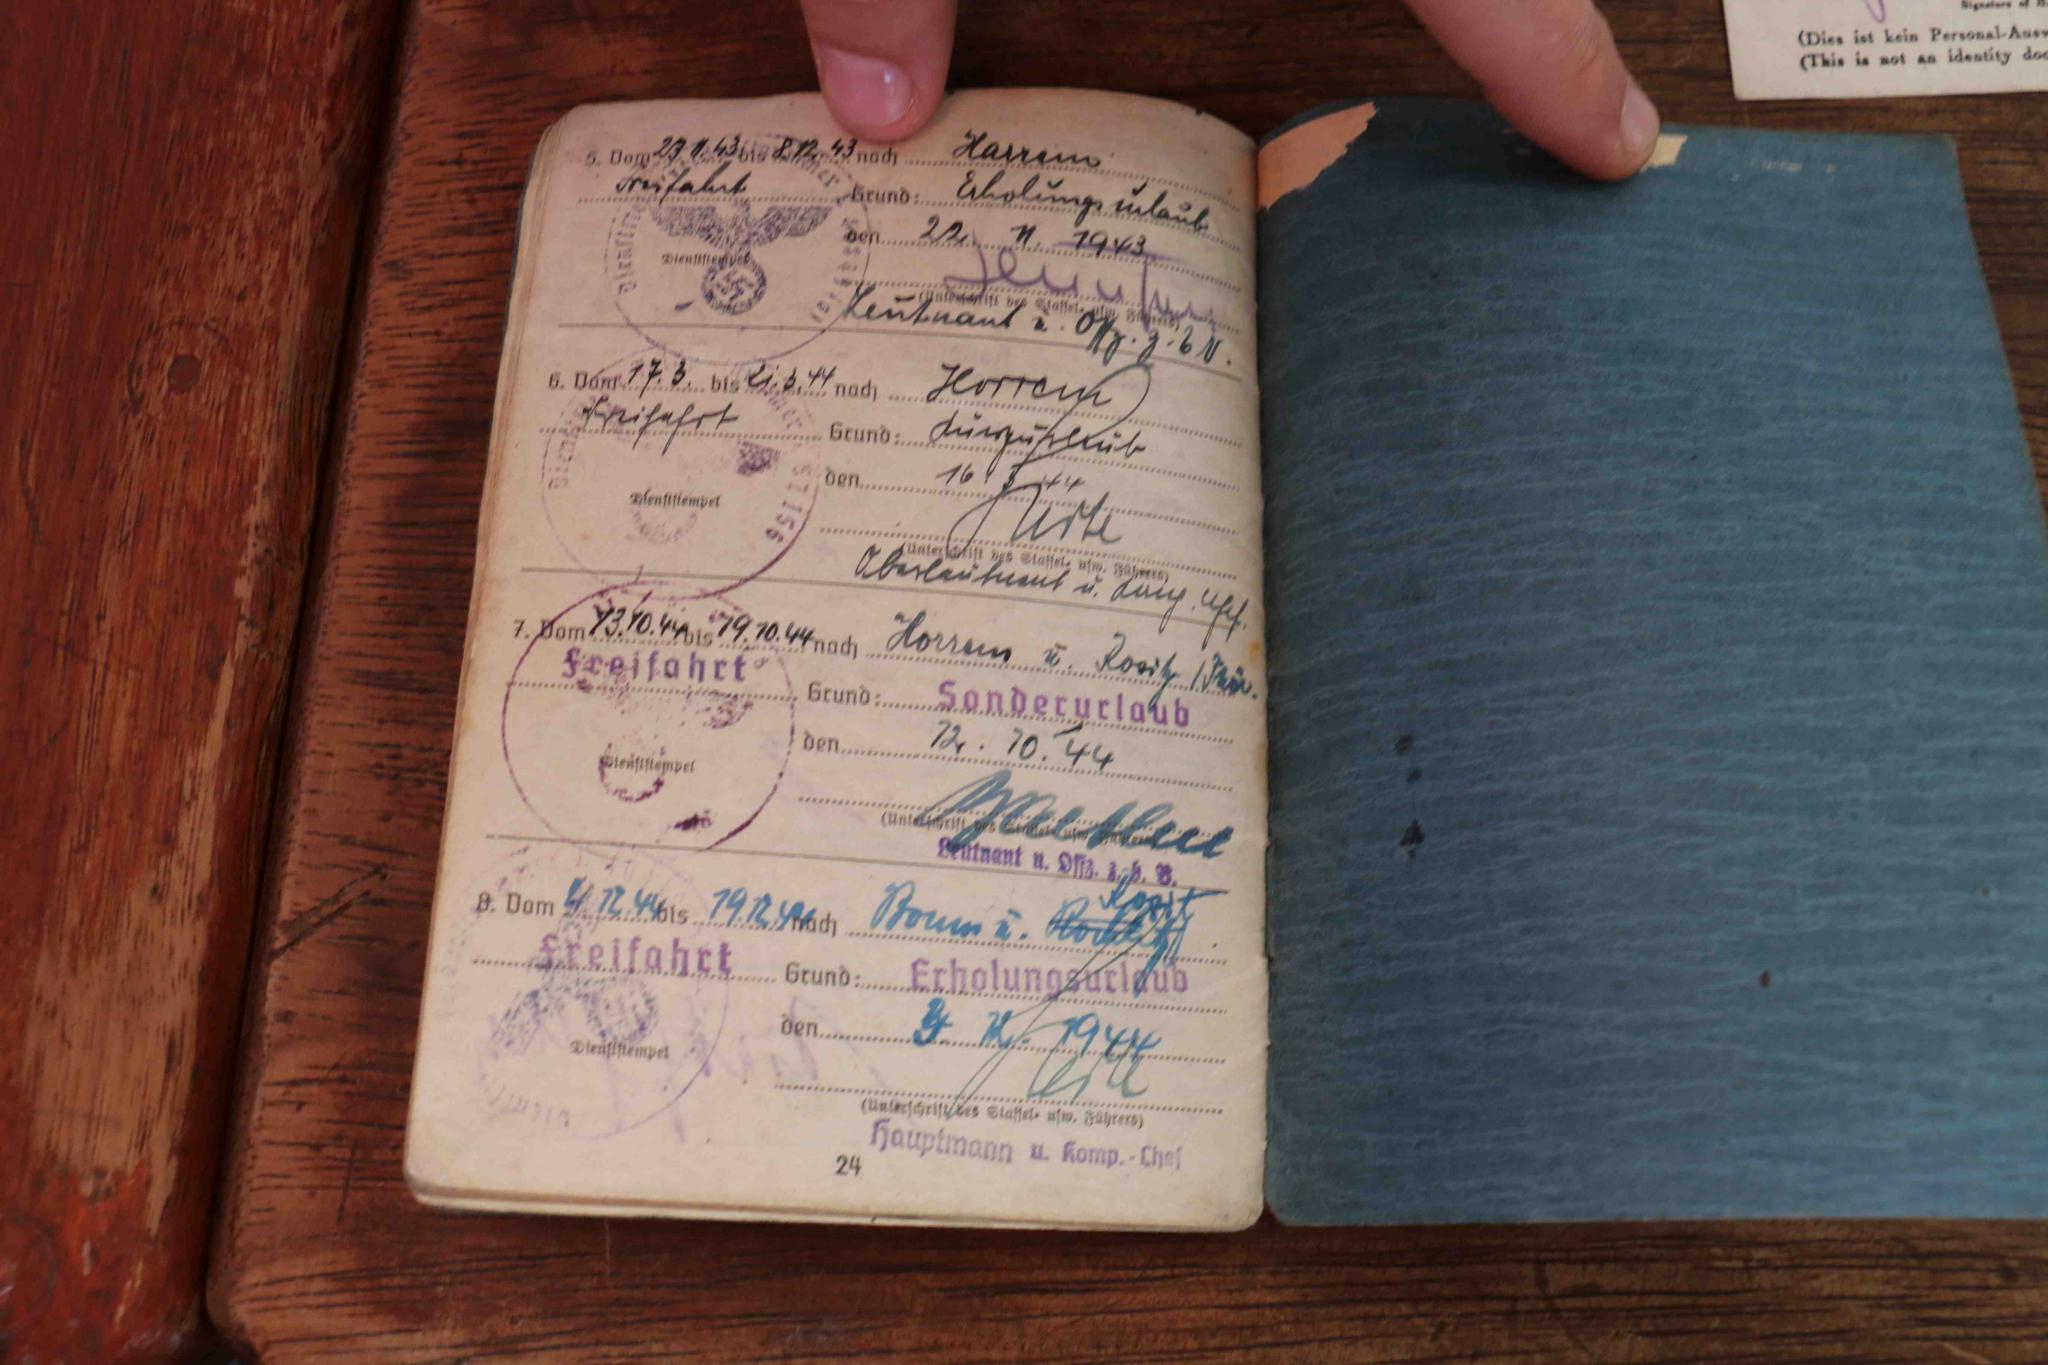 5. Vom 23.11.43 bis 8.12.43 nach Harrem
Freifahrt Grund: Erholungsurlaub
den 22. 11. 1943
Dienststempel
(Unterschrift des Staffel- usw. Führers)
Leutnant u. Offz. z. b V.
6. Vom 17.3. bis 21.3.44 nach Horrem
Freifahrt Grund: Kurzurlaub
den 16. 3. 44
Dienststempel
(Unterschrift des Staffel- usw. Führers)
Oberleutnant u. Komp. Chef.
7. Vom 13.10.44 bis 19.10.44 nach Horrem u. Rositz /Thür.
Freifahrt
Grund: Sonderurlaub
den 12. 10. 44
Dienststempel
(Unterschrift des Staffel- usw. Führers)
Leutnant u. Offz. z. b. V.
8. Vom 4.12.44 bis 19.12.44 nach Bonn u. Rositz
Freifahrt
Grund: Erholungsurlaub
den 3. 12. 1944
Dienststempel
(Unterschrift des Staffel- usw. Führers)
Hauptmann u. Komp.-Chef
24
Signature of
(Dies ist kein Personal-Ausw
(This is not an identity doc